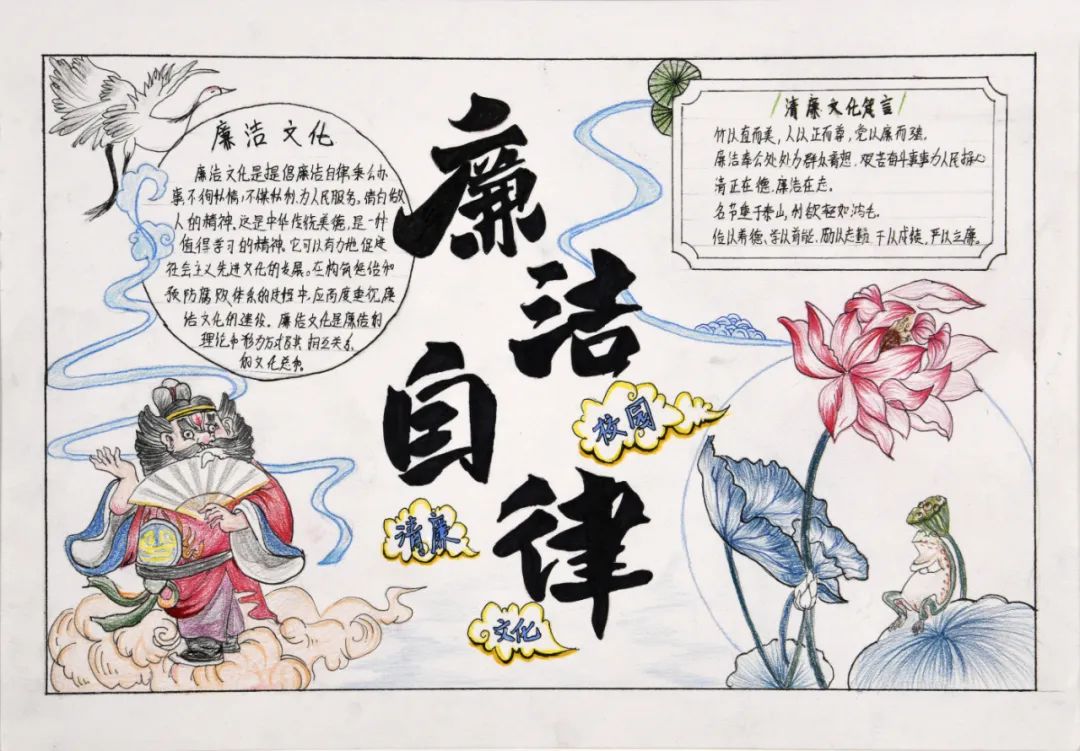 廉洁文化
廉洁文化是提倡廉洁自律秉公办
事,不徇私情,不谋私利,为人民服务。清白做
人的精神。这是中华传统美德,是一种
值得学习的精神。它可以有力地促进
社会主义先进文化的发展。在构筑惩治和
预防腐败体系的过程中,应高度重视廉
洁文化的建设。廉洁文化是廉洁的
理论和 相互关系
的文化总和
廉
洁
自
律
校园
清廉
文化
清廉文化名言
竹以直而美,人以正而尊,党以廉而强。
廉洁奉公处处为群众着想,艰苦奋斗事事为人民操心
清正在德,廉洁在志。
名节重于泰山,利欲轻如鸿毛。
位以希德、学以育能、励以志勤、干以成绩、严以立廉。